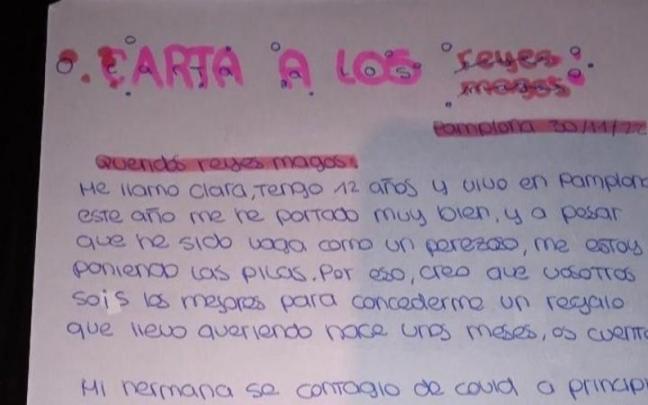 CARTA A LOS reyes
magos
Pamplona 30/11/22
Queridos reyes magos:
Me llamo Clara, tengo 12 años y vivo en Pamplona
este año me he portado muy bien, y a pesar
que he sido vaga como un perezoso, me estoy
poniendo las pilas. Por eso, creo que vosotros
sois los mejores para concederme un regalo
que llevo queriendo hace unos meses, os cuento
Mi hermana se contagio de covid a principi